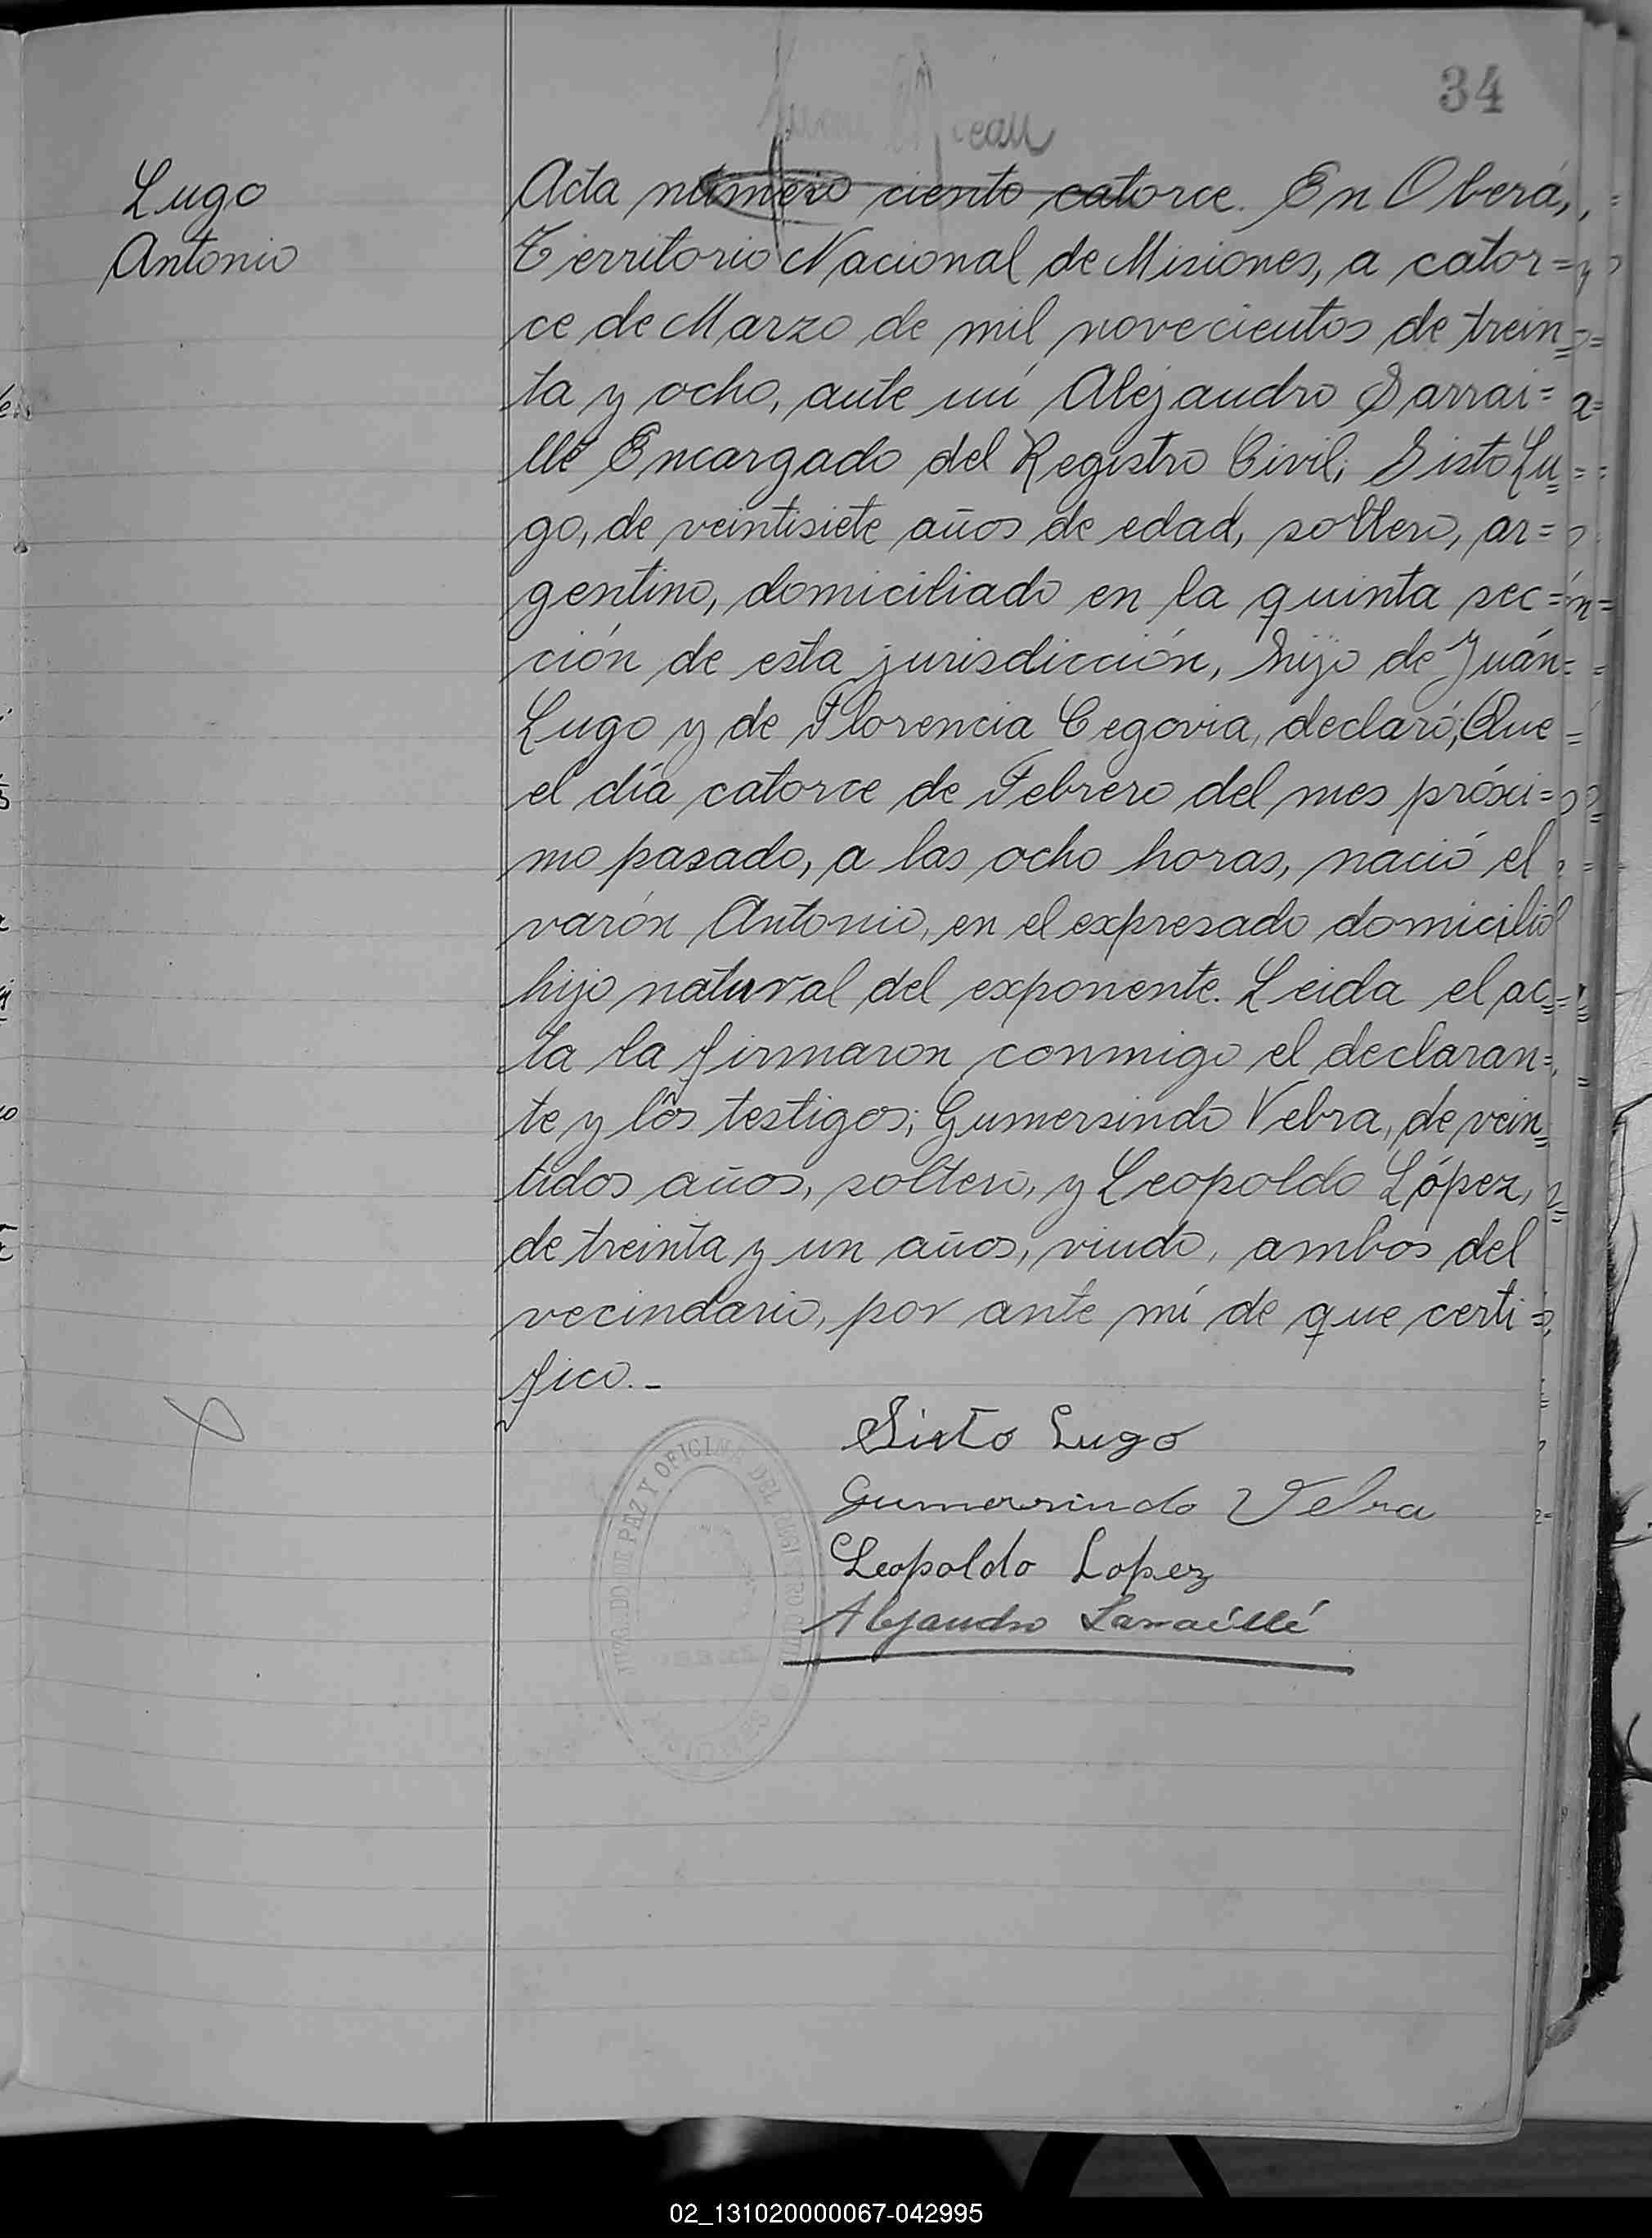 34
Lugo
Antonio
Acta número ciento catorce. En Oberá,
Territorio Nacional de Misiones, a cator=
ce de Marzo de mil novecientos de trein=
ta y ocho, ante mí Alejandro Sarrai=
llé Encargado del Registro Civil; Sisto Lu=
go, de veintisiete años de edad, soltero, ar=
gentino, domiciliado en la quinta sec=
ción de esta jurisdicción, hijo de Juán
Lugo y de Florencia Cegovia, declaró; Que
el día catorce de Febrero del mes próxi=
mo pasado, a las ocho horas, nació el
varón Antonio, en el expresado domicilio
hijo natural del exponente. Leida el ac=
ta la firmaron conmigo el declaran=
te y los testigos; Gumersindo Vebra, de vein=
tidos años, soltero, y Leopoldo López,
de treinta y un años, viudo, ambos del
vecindario, por ante mí de que certi=
fico.-
Sisto Lugo
Gumersindo Vebra
Leopoldo Lopez
Alejandro Sarraillé
JUZGADO DE PAZ Y OFICINA DEL REGISTRO CIVIL
02_131020000067-042995